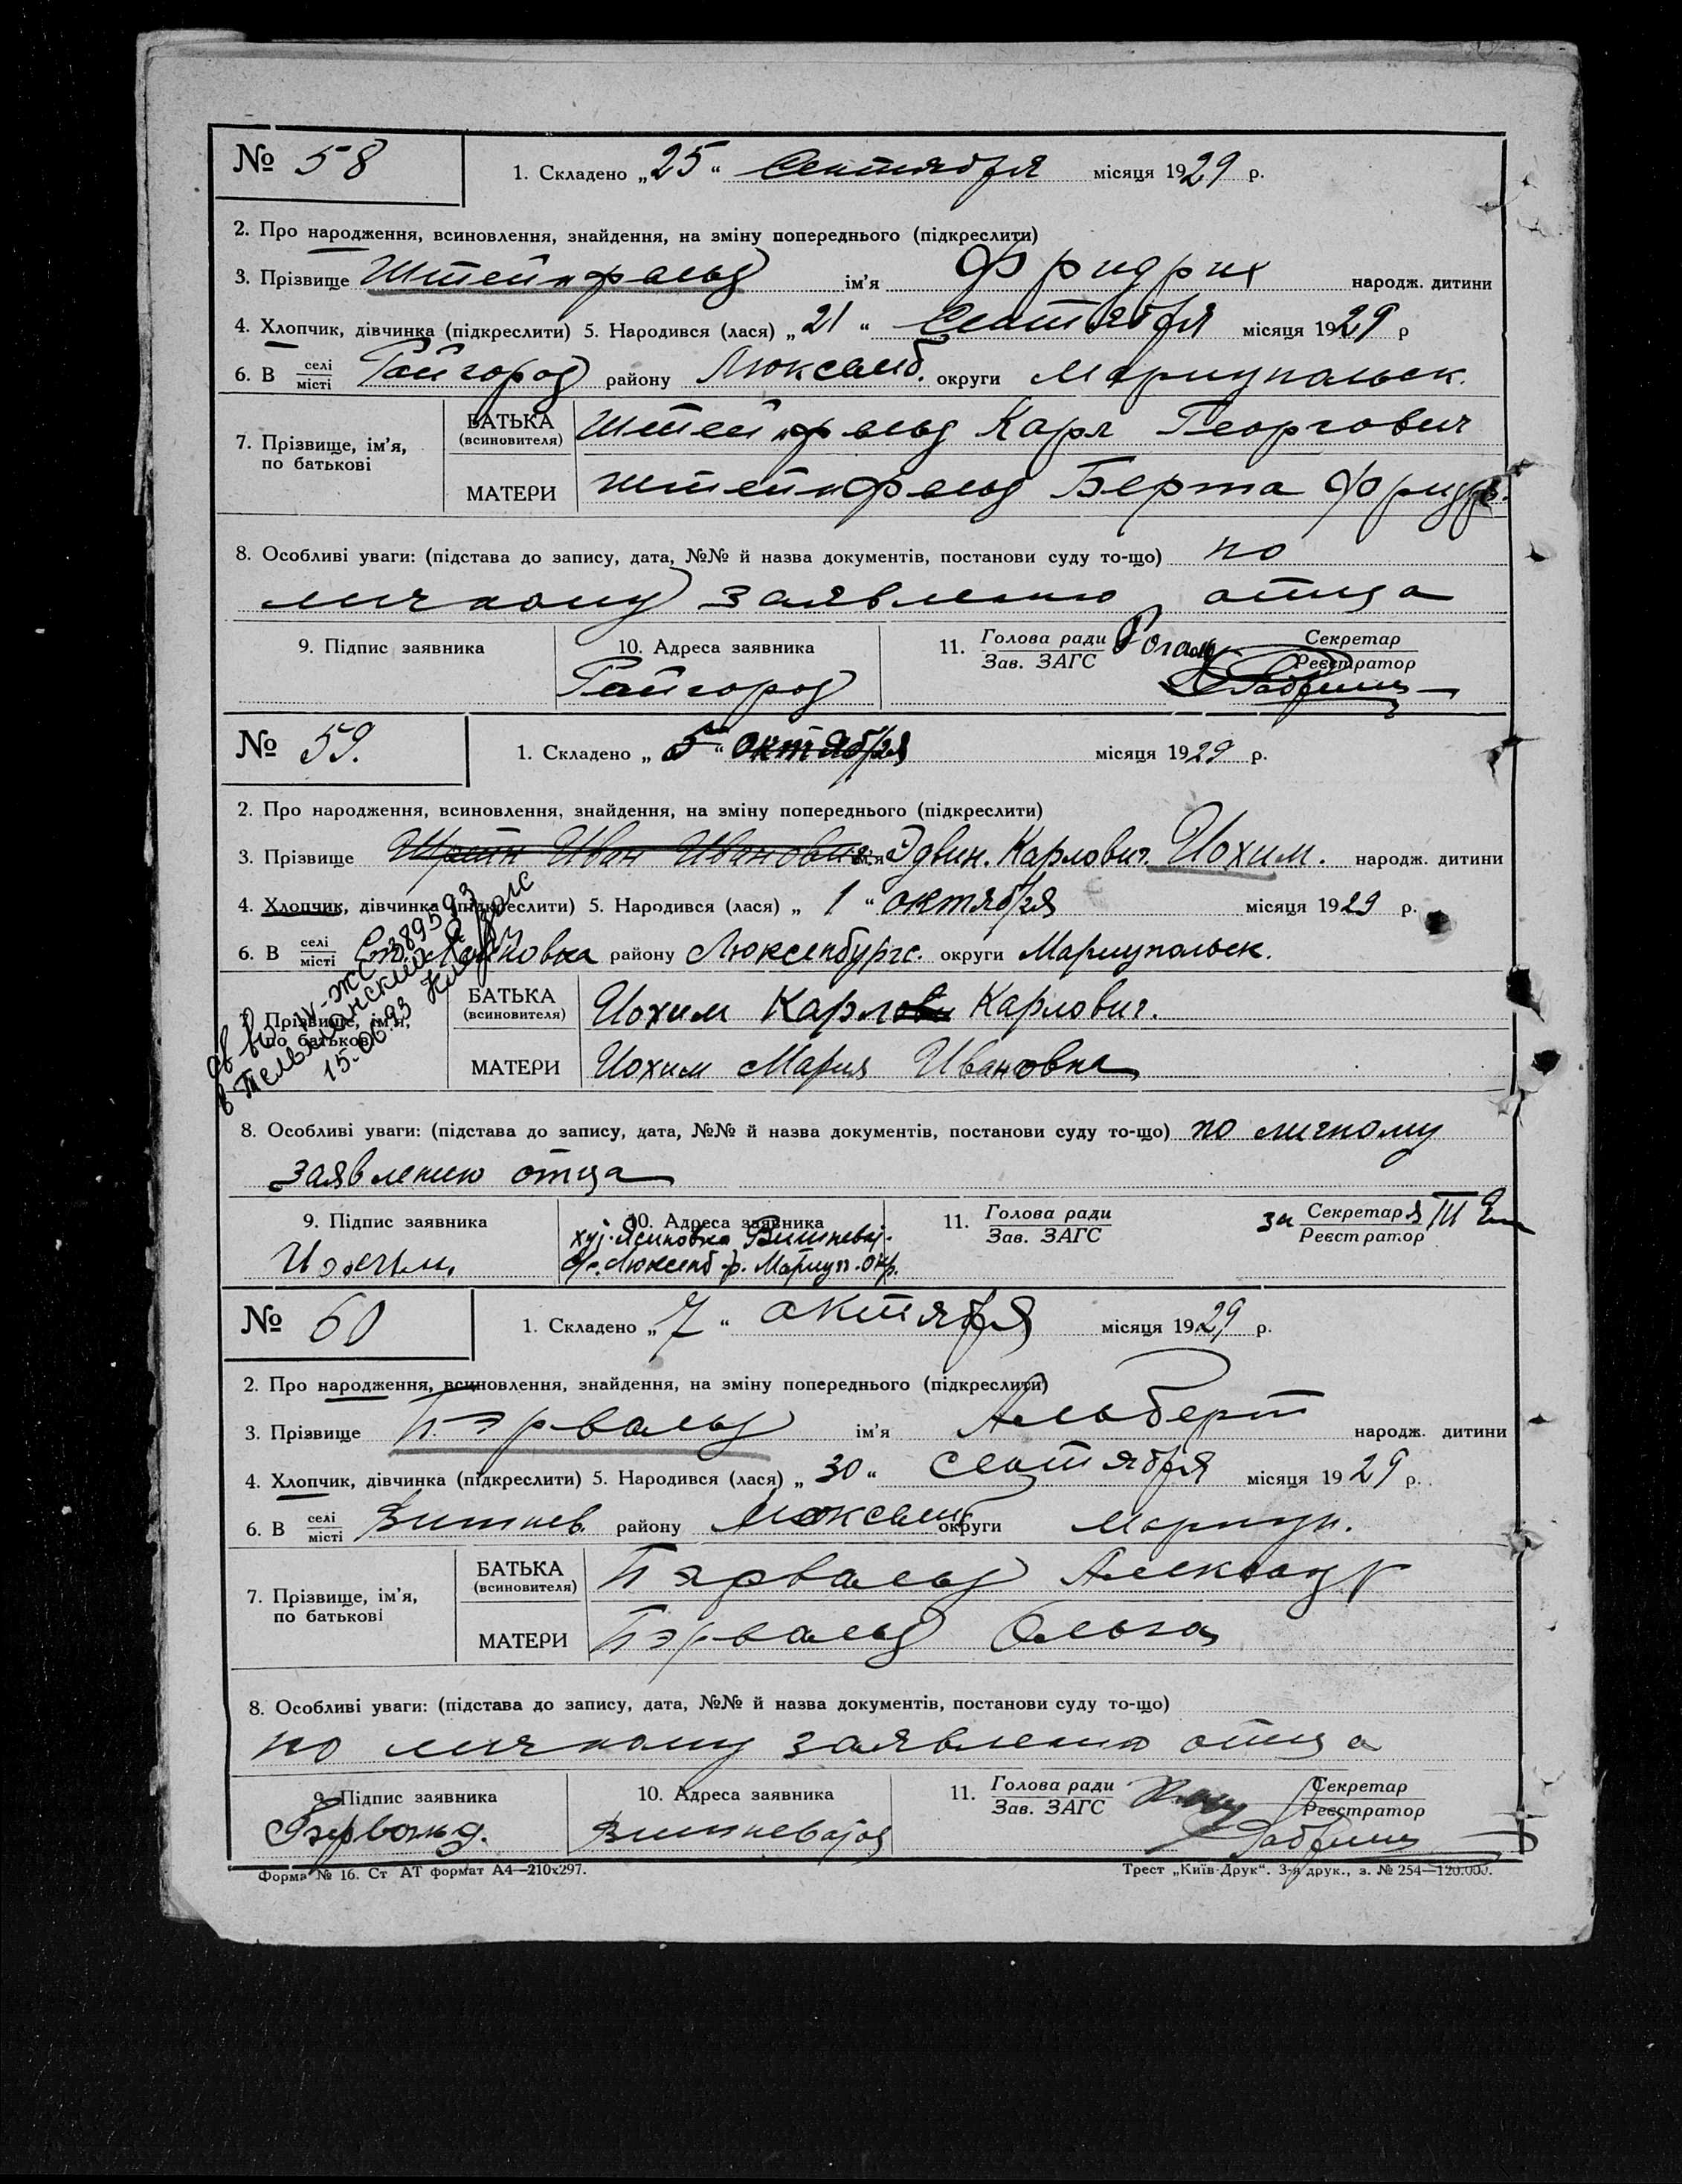 № 58
1. Складено „25“ Сентября місяця 1929 р.
2. Про народження, всиновлення, знайдення, на зміну попереднього (підкреслити)
3. Прізвище Штейнфельд ім’я Фридрих народж. дитини
4. Хлопчик, дівчинка (підкреслити) 5. Народився (лася) „21“ Сентября місяця 1929 р
6. В селі/місті Райгород району Люксемб. округи Мариупольск.
БАТЬКА (всиновителя) Штейнфельд Карл Георгович
7. Прізвище, ім’я, по батькові
МАТЕРИ Штейнфельд Берта Фридр.
8. Особливі уваги: (підстава до запису, дата, №№ й назва документів, постанови суду то-що) по
личному заявлению отца
9. Підпис заявника 10. Адреса заявника 11. Голова ради/Зав. ЗАГС Секретар/Реєстратор
Райгород
№ 59.
1. Складено „5“ октября місяця 1929 р.
2. Про народження, всиновлення, знайдення, на зміну попереднього (підкреслити)
3. Прізвище Иван Иванович ім’я Эдвин. Карлович Иохим. народж. дитини
4. Хлопчик, дівчинка (підкреслити) 5. Народився (лася) „1“ октября місяця 1929 р.
6. В селі/місті району Люксенбургс. округи Мариупольск.
IV-ЖС 389593
в Тельманский
15.06.93
БАТЬКА (всиновителя) Иохим Карл Карлович.
7. Прізвище, ім’я, по батькові
МАТЕРИ Иохим Мария Ивановна
8. Особливі уваги: (підстава до запису, дата, №№ й назва документів, постанови суду то-що) по личному
заявлению отца
9. Підпис заявника 10. Адреса заявника 11. Голова ради/Зав. ЗАГС за Секретаря/Реєстратор
хут. Ясиновка Вишневат.
Иохим. с/с. Люксемб. р. Мариуп. окр.
№ 60
1. Складено „7“ октября місяця 1929 р.
2. Про народження, всиновлення, знайдення, на зміну попереднього (підкреслити)
3. Прізвище Бэрвальд ім’я Альберт народж. дитини
4. Хлопчик, дівчинка (підкреслити) 5. Народився (лася) „30“ сентября місяця 1929 р.
6. В селі/місті Вишнев. району Люксемб округи Мариуп.
БАТЬКА (всиновителя) Бэрвальд Александр
7. Прізвище, ім’я, по батькові
МАТЕРИ Бэрвальд Ольга
8. Особливі уваги: (підстава до запису, дата, №№ й назва документів, постанови суду то-що)
по личному заявлению отца
9. Підпис заявника 10. Адреса заявника 11. Голова ради/Зав. ЗАГС Секретар/Реєстратор
Бэрвальд. Вишневатой
Форма № 16. Ст АТ формат А4—210х297. Трест „Київ-Друк“. 3-я друк., з. № 254—120.000.